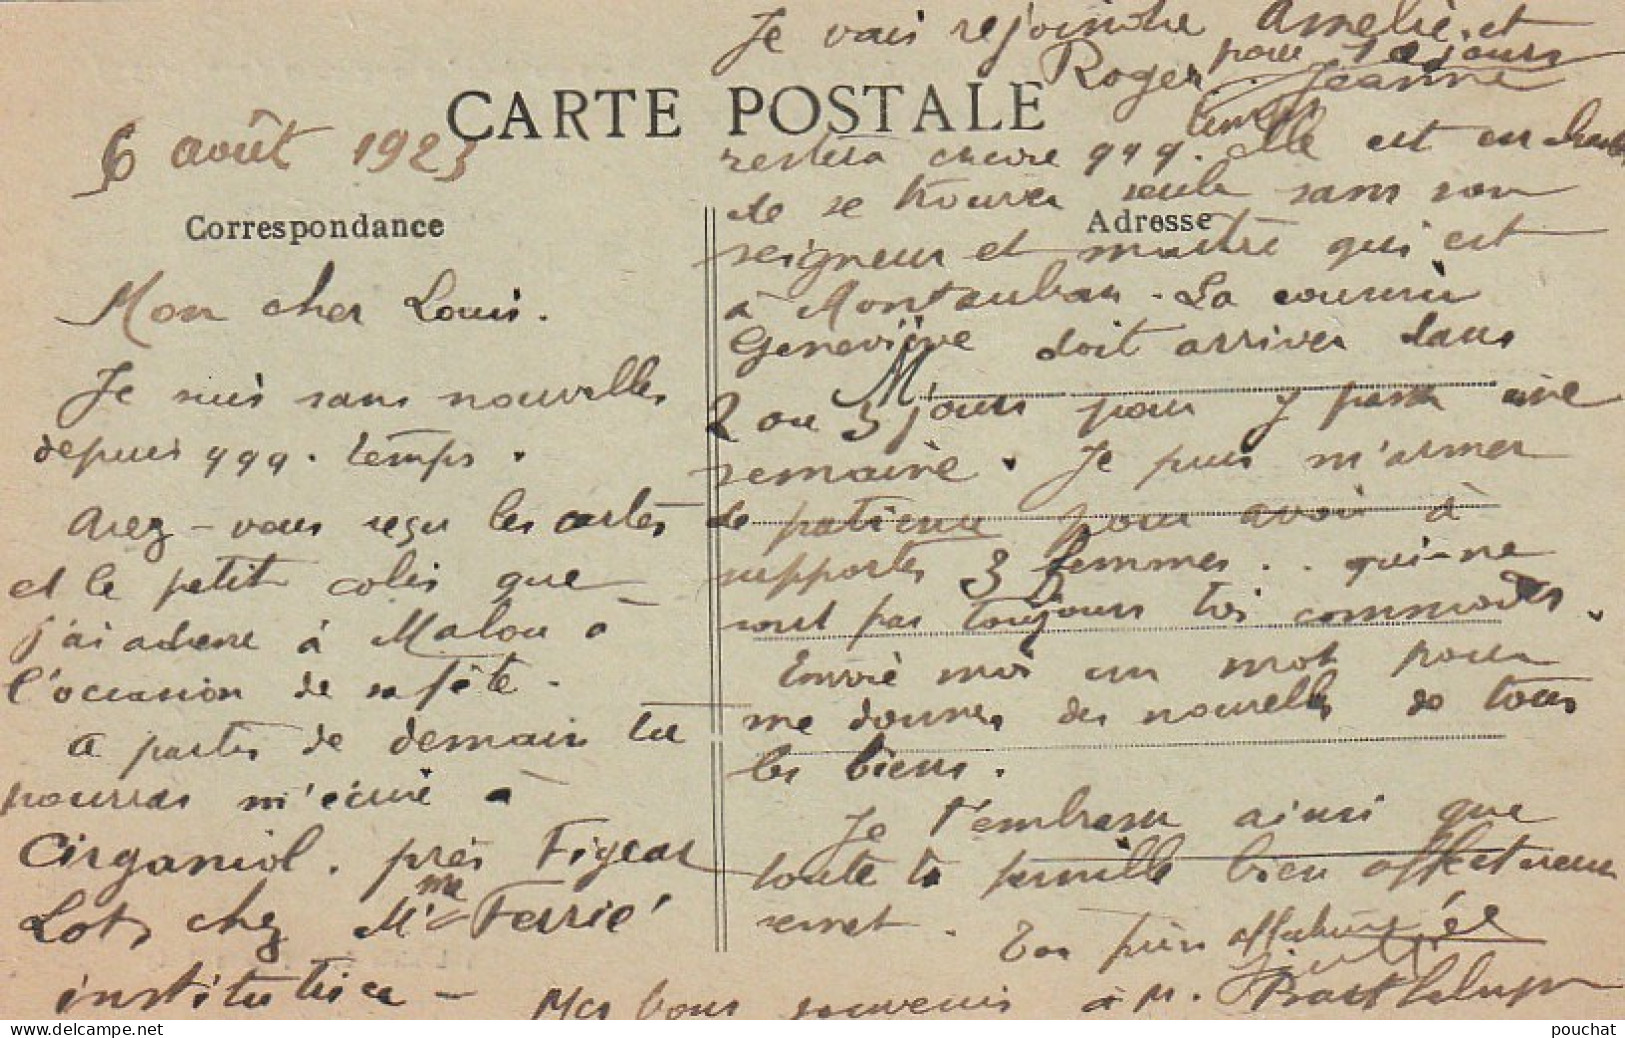 CARTE POSTALE
6 août 1923
Correspondance
Mon cher Louis.
Je suis sans nouvelles
depuis qqq. temps.
Avez-vous reçu les cartes
et le petit colis que
j'ai adressé à Malou à
l'occasion de sa fête.
A partir de demain tu
pourras m'écrire à
Cirganiol. près Figeac
Lot, chez Mme Ferrié
institutrice -
Je vais rejoindre Amélie et
Roger pour 10 jours
. Jeanne
restera encore qqq. temps
elle est en
de se trouver seule sans son
Adresse
seigneur et maître qui est
à Montauban - La cousine
Geneviève doit arriver dans
M
2 ou 3 jours pour y passer une
semaine. Je puis m'armer
de patience pour avoir à
supporter 3 femmes.. qui ne
sont pas toujours très commodes.
Envoie moi un mot pour
me donner des nouvelles de tous
les biens.
Je t'embrasse ainsi que
toute ta famille bien affectueu
sement.
Ton père affectionné
Mes bons souvenirs à M.
pouchat